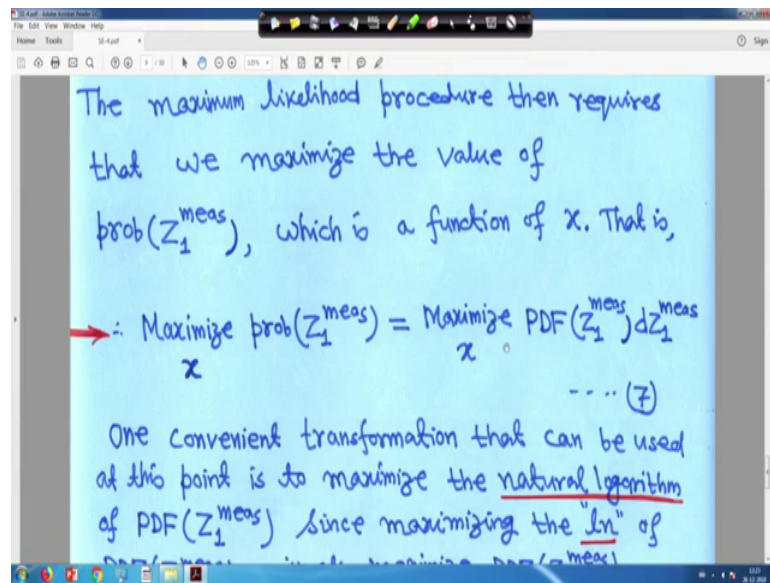 SE-4.pdf - Adobe Acrobat Reader DC
File Edit View Window Help
Home Tools SE-4.pdf x Sign
The maximum likelihood procedure then requires
that we maximize the value of
prob(Z₁ᵐᵉᵃˢ), which is a function of x. That is,
∴ Maximize prob(Z₁ᵐᵉᵃˢ) = Maximize PDF(Z₁ᵐᵉᵃˢ)dZ₁ᵐᵉᵃˢ
x x
---- (7)
One convenient transformation that can be used
at this point is to maximize the natural logarithm
of PDF(Z₁ᵐᵉᵃˢ) since maximizing the "ln" of